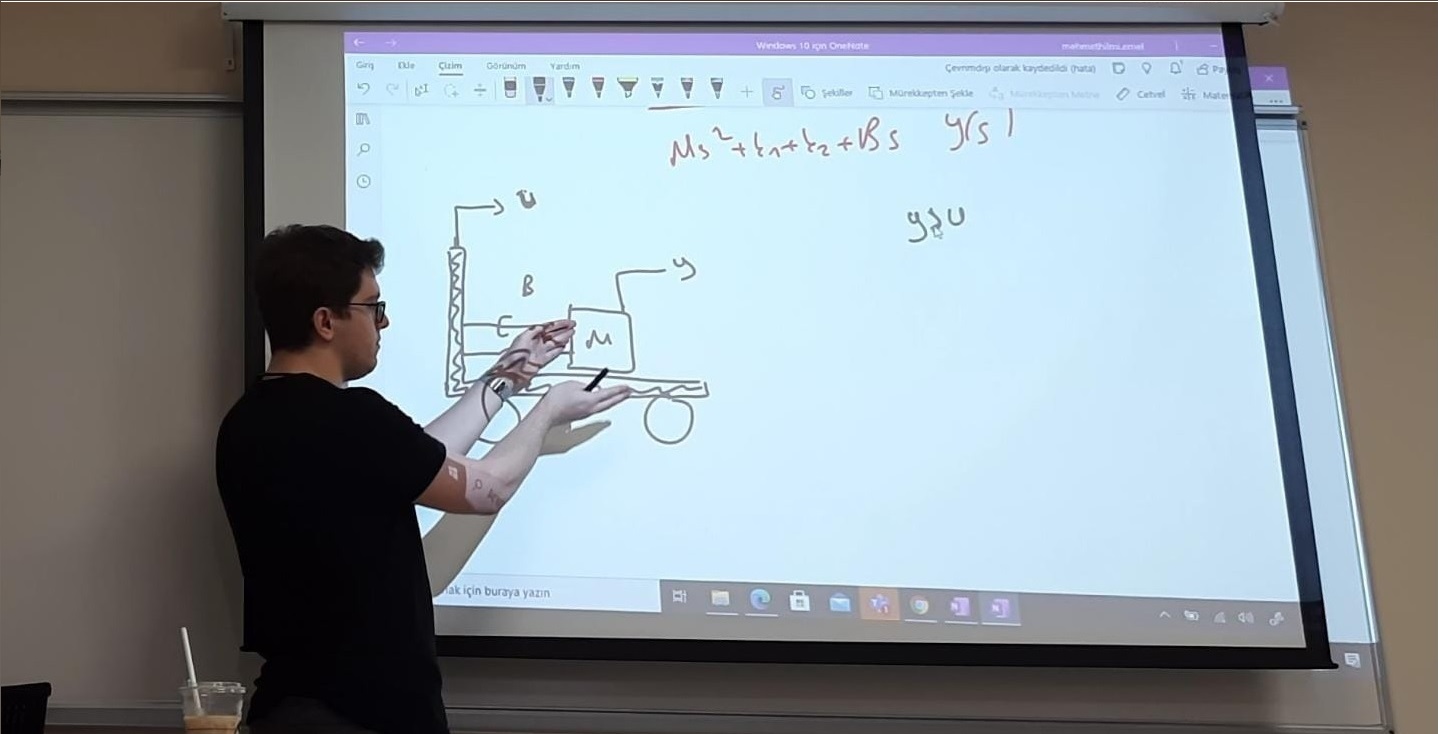 Windows 10 için OneNote
mehmethilmi.emel
Giriş Ekle Çizim Görünüm Yardım
Çevrimdışı olarak kaydedildi (hata)
Şekiller Mürekkepten Şekle Mürekkepten Metne Cetvel
Ms²+k₁+k₂+Bs y(s)
u
y
B
M
için buraya yazın